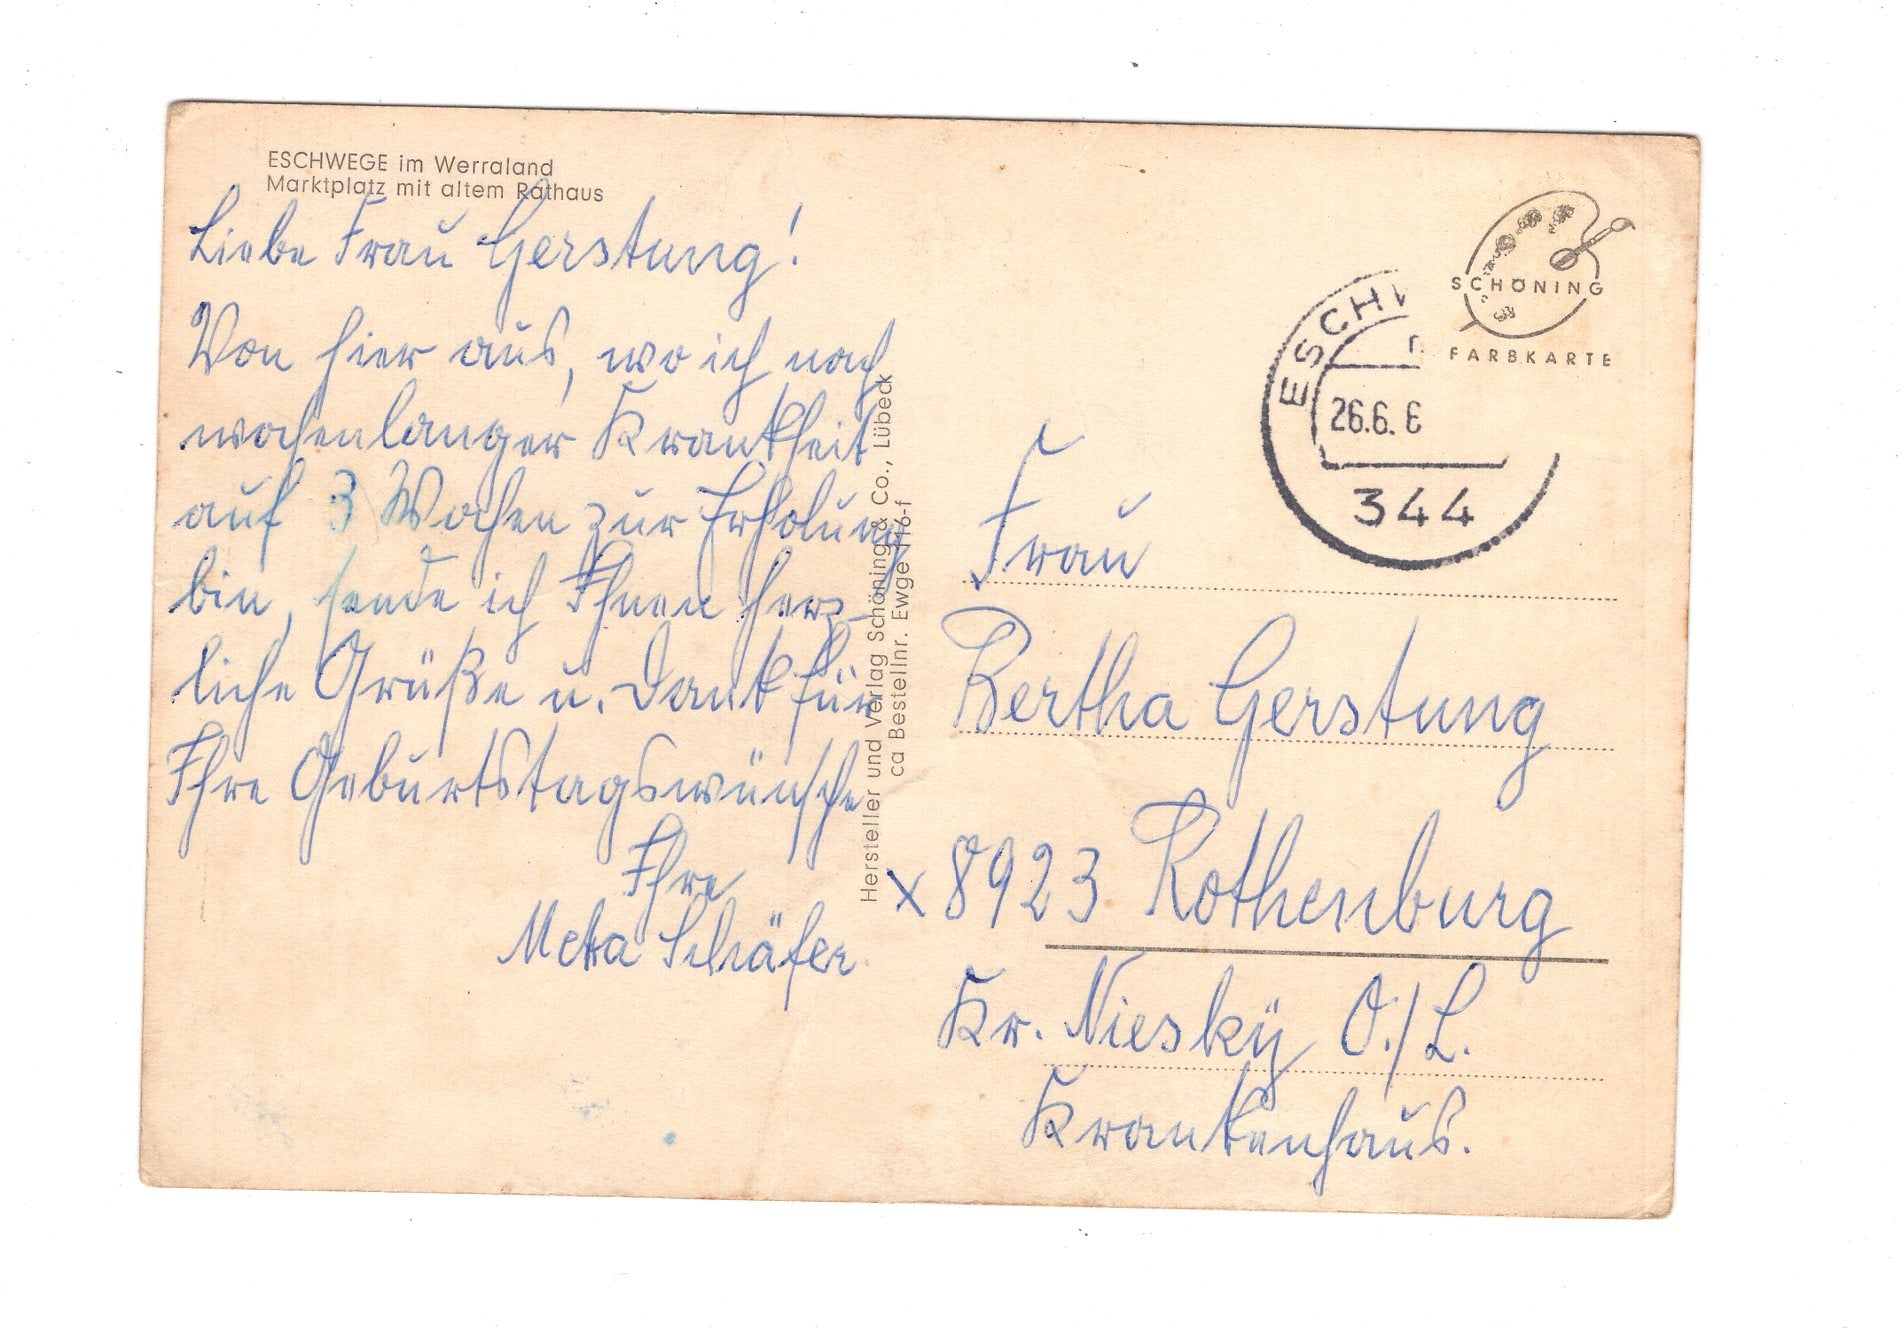 ESCHWEGE im Werraland
Marktplatz mit altem Rathaus
Liebe Frau Gerstung!
Von hier aus, wo ich nach
wochenlanger Krankheit
auf 3 Wochen zur Erholung
bin, sende ich Ihnen herz-
liche Grüße u. Dank für
Ihre Geburtstagswünsche
Ihre
Metta Schäfer.
Hersteller und Verlag Schöning & Co., Lübeck
ca Bestellnr. Ewge 116-f
SCHÖNING
FARBKARTE
ESCHW
26.6. 6
344
Frau
Bertha Gerstung
x 8923 Rothenburg
Kr. Niesky O./L.
Krankenhaus.